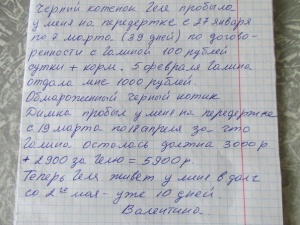 Черный котенок Геля пробыла
у меня на передержке с 27 января
по 7 марта (39 дней) по догово-
ренности с Галиной 100 рублей
сутки + корм. 5 февраля Галина
отдала мне 1000 рублей.
Обмороженный черный котик
Димка пробыл у меня на передержке
с 19 марта по 18 апреля за что
Галина осталась должна 3000 р
+ 2900 за Гелю = 5900 р.
Теперь Геля живет у меня в долг
со 2го мая - уже 10 дней.
Валентина.